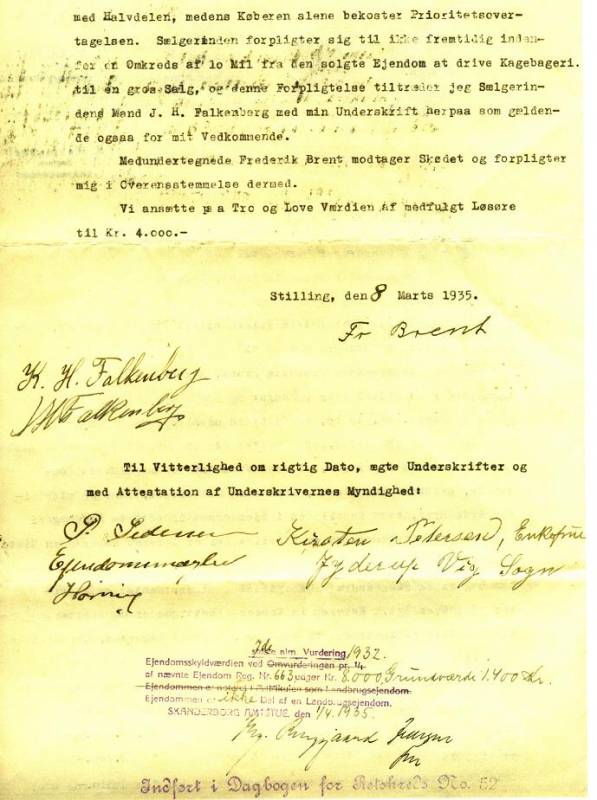 med Halvdelen, medens Køberen alene bekoster Prioritetsover-
tagelsen. Sælgerinden forpligter sig til ikke fremtidig inden-
for en Omkreds af 10 Mil fra den solgte Ejendom at drive Kagebageri
til en gros Salg, og denne Forpligtelse tiltræder jeg Sælgerin-
dens Mand J. H. Falkenberg med min Underskrift herpaa som gælden-
de ogsaa for mit Vedkommende.
Medundertegnede Frederik Brent modtager Skødet og forpligter
mig i Overensstemmelse dermed.
Vi ansætte paa Tro og Love Værdien af medfulgt Løsøre
til Kr. 4.000.-
Stilling, den 8 Marts 1935.
Fr Brent
K. H. Falkenberg
JHFalkenberg
Til Vitterlighed om rigtig Dato, ægte Underskrifter og
med Attestation af Underskrivernes Myndighed:
P. Pedersen
Kirsten Petersen, Enkefrue
Ejendomsmægler
Jyderup Vig Sogn
Hørning
alm. Vurdering 1932.
Ejendomsskyldværdien ved Omvurderingen pr. 1/4
af nævnte Ejendom Reg. Nr. 663 udgør Kr. 8000, Grundværdi 1.400 Kr.
Ejendommen er noteret i Matrikulen som Landbrugsejendom.
Ejendommen er ikke Del af en Landbrugsejendom.
SKANDERBORG AMTSTUE, den 1/4 1935.
Indført i Dagbogen for Retskreds No. 52